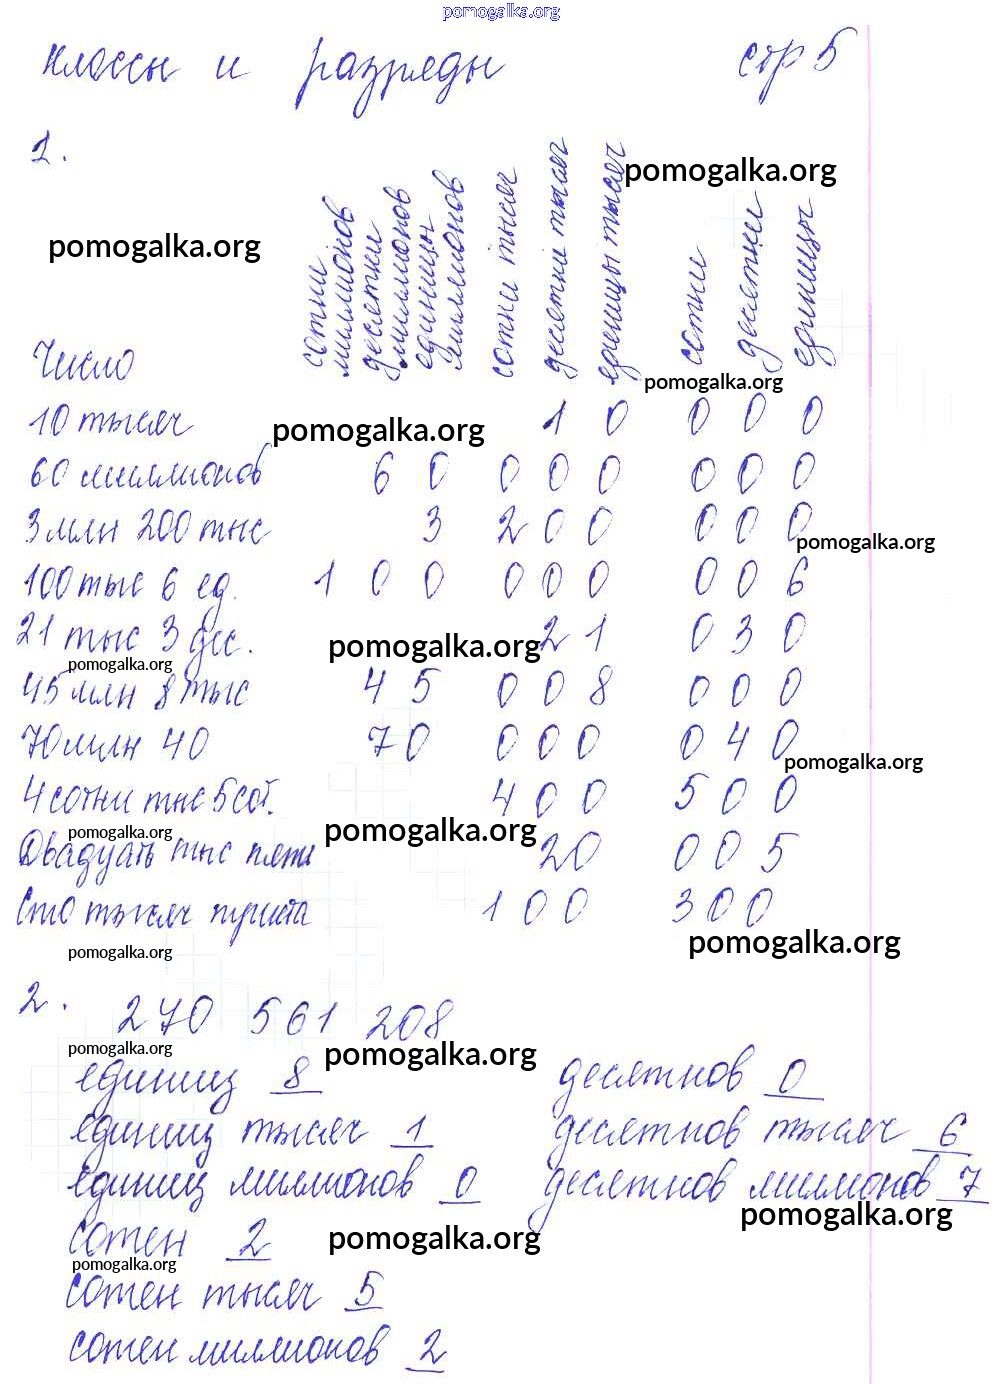 pomogalka.org
Классы и разряды стр 5
1.
pomogalka.org
pomogalka.org
Число сотни миллионов десятки миллионов единицы миллионов сотни тысяч десятки тысяч единицы тысяч сотни десятки единицы
pomogalka.org
10 тысяч 1 0 0 0 0
pomogalka.org
60 миллионов 6 0 0 0 0 0 0 0
3 млн 200 тыс 3 2 0 0 0 0 0
pomogalka.org
100 тыс 6 ед. 1 0 0 0 0 0 0 0 6
21 тыс 3 дес. 2 1 0 3 0
pomogalka.org
pomogalka.org
45 млн 8 тыс 4 5 0 0 8 0 0 0
70 млн 40 7 0 0 0 0 0 4 0
pomogalka.org
4 сотни тыс 5 сот. 4 0 0 5 0 0
pomogalka.org pomogalka.org
Двадцать тыс пять 2 0 0 0 5
Сто тысяч 1 0 0 3 0 0
pomogalka.org
pomogalka.org
2. 270 561 208
pomogalka.org pomogalka.org
единиц 8 десятков 0
единиц тысяч 1 десятков тысяч 6
единиц миллионов 0 десятков миллионов 7
pomogalka.org
сотен 2 pomogalka.org
pomogalka.org
сотен тысяч 5
сотен миллионов 2